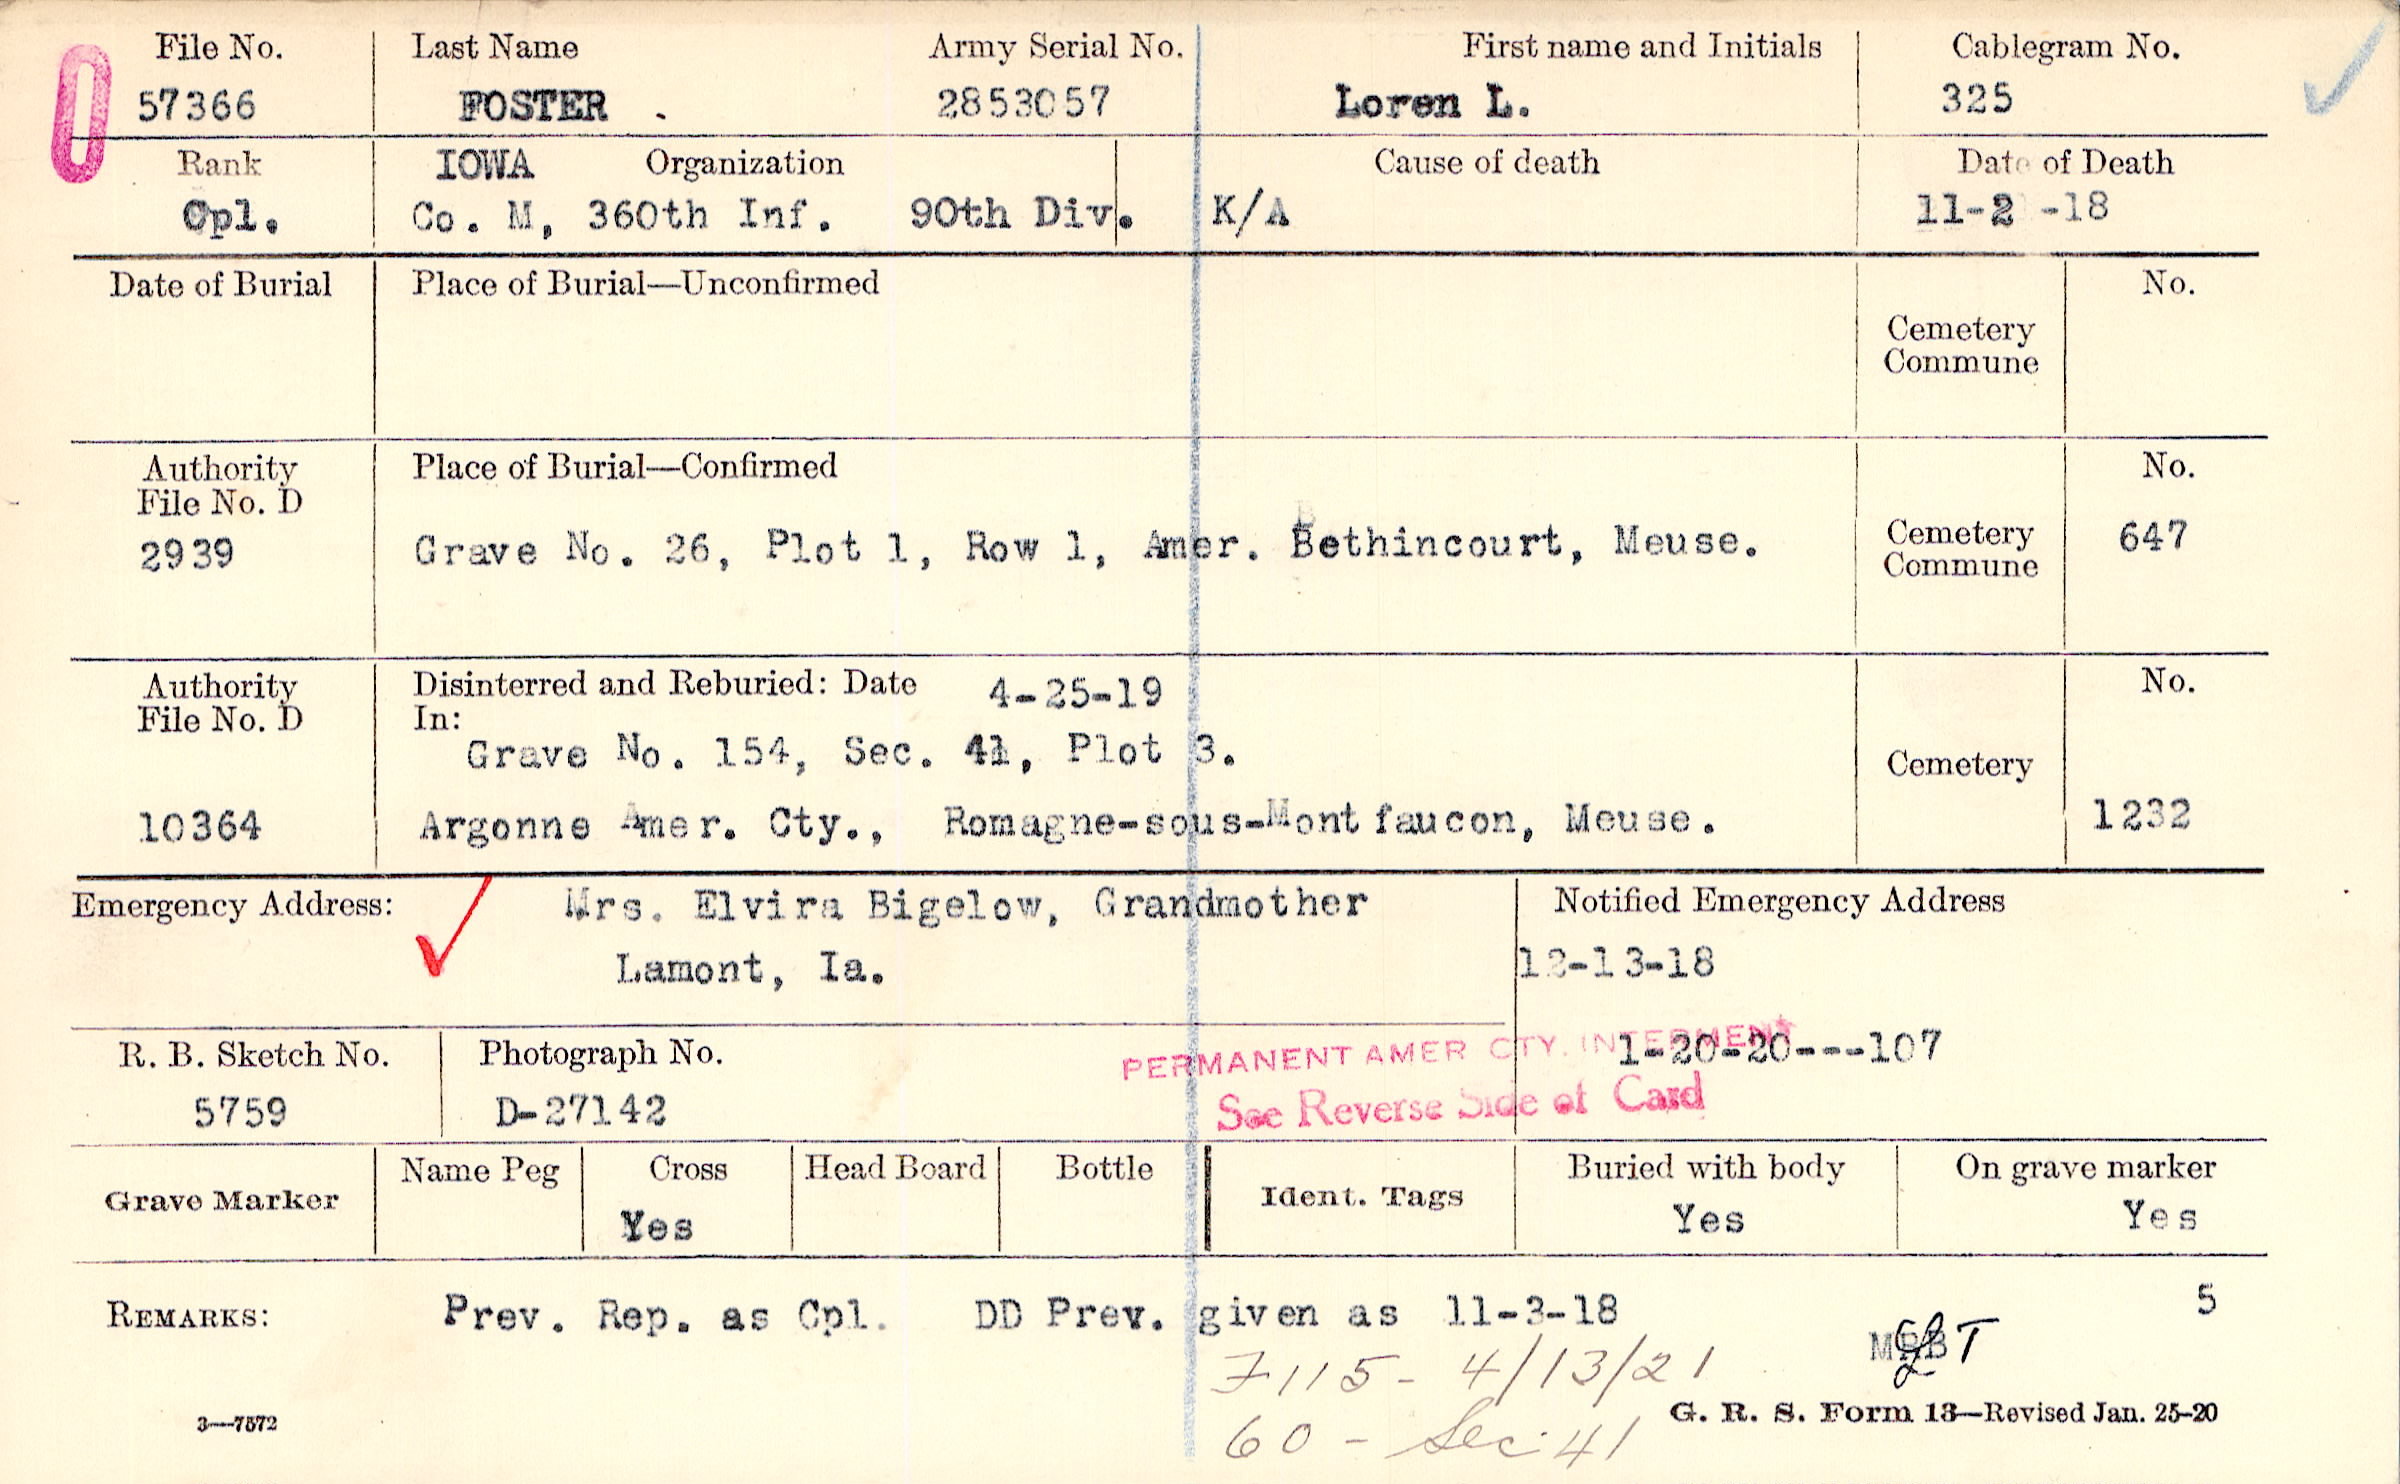 File No. Last Name Army Serial No. First name and Initials Cablegram No.
57366 FOSTER . 2853057 Loren L. 325
Rank IOWA Organization Cause of death Date of Death
Cpl. Co. M, 360th Inf. 90th Div. K/A 11-2 -18
Date of Burial Place of Burial—Unconfirmed No.
Cemetery
Commune
Authority Place of Burial—Confirmed No.
File No. D
2939 Grave No. 26, Plot 1, Row 1, Amer. Bethincourt, Meuse. Cemetery 647
Commune
Authority Disinterred and Reburied: Date 4-25-19 No.
File No. D In:
Grave No. 154, Sec. 41, Plot 3. Cemetery
10364 Argonne Amer. Cty., Romagne-sous-Montfaucon, Meuse. 1232
Emergency Address: Mrs. Elvira Bigelow, Grandmother Notified Emergency Address
Lamont, Ia. 12-13-18
R. B. Sketch No. Photograph No. PERMANENT AMER CTY. INTERMENT 1-20-20---107
5759 D-27142 See Reverse Side of Card
Grave Marker Name Peg Cross Head Board Bottle Ident. Tags Buried with body On grave marker
Yes Yes Yes
REMARKS: Prev. Rep. as Cpl. DD Prev. given as 11-3-18 5
7115- 4/13/21
60 - Sec. 41
3—7572 G. R. S. Form 13—Revised Jan. 25-20